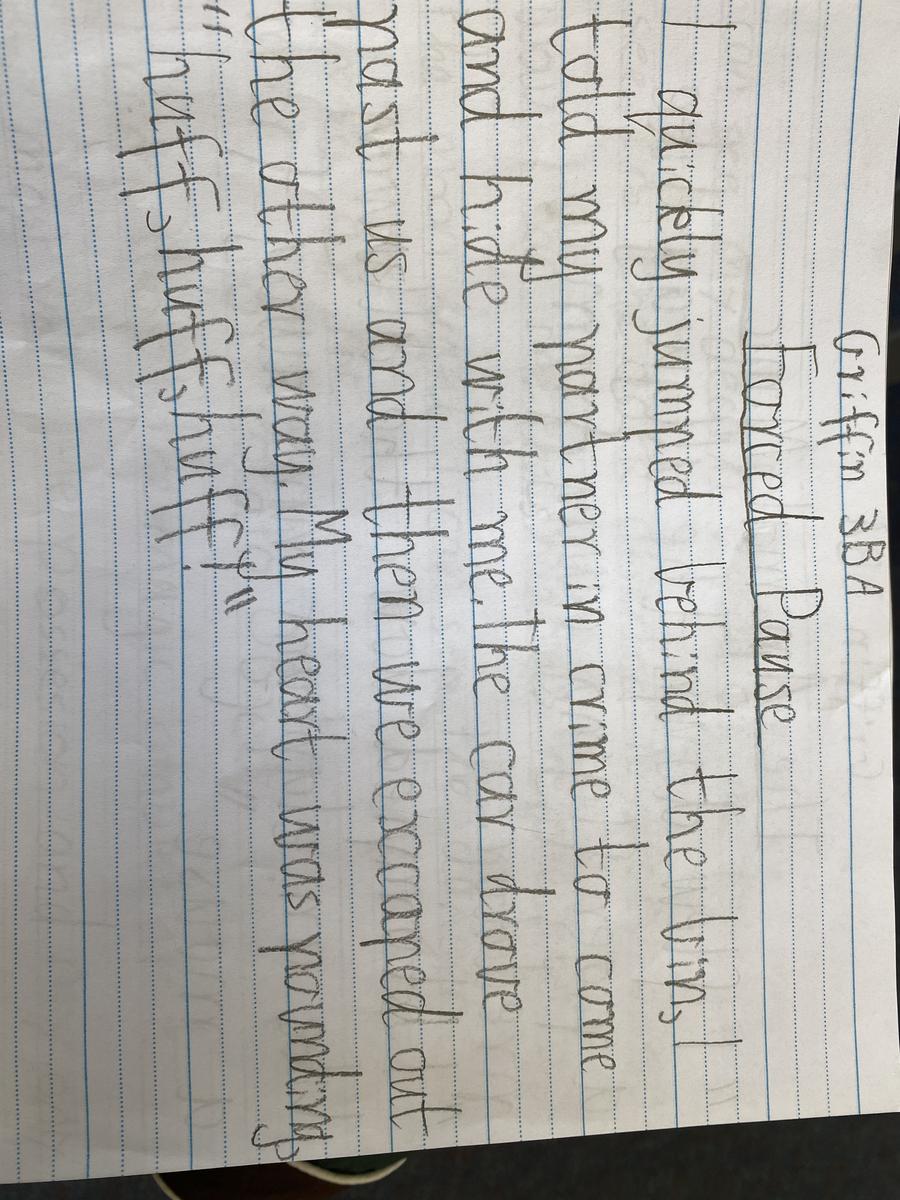 Griffin 3BA
Forced Pause
I quickly jumped behind the bin, I
told my partner in crime to come
and hide with me. the car drove
past us and then we excaped out
the other way. My heart was pounding,
"huff, huff, huff!"